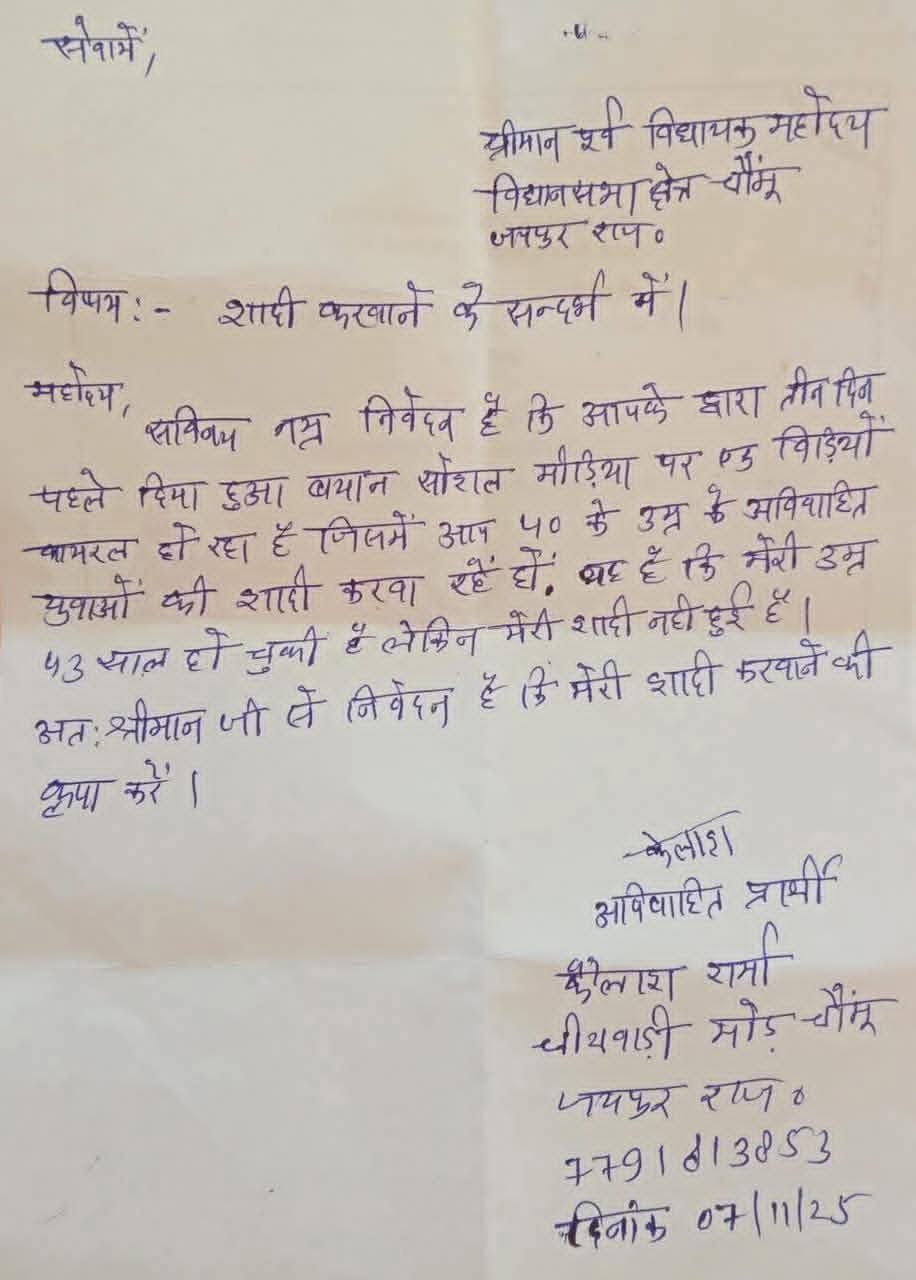 सेवामें,
श्रीमान पूर्व विधायक महोदय
विधानसभा क्षेत्र चौंमू
जयपुर राज०
विषय:- शादी करवाने के सन्दर्भ में।
महोदय,
सविनय नम्र निवेदन है कि आपके द्वारा तीन दिन
पहले दिया हुआ बयान सोशल मीडिया पर एक विडियों
वायरल हो रहा है जिसमें आप 40 के उम्र के अविवाहित
युवाओं की शादी करवा रहें हों. यह है कि मेरी उम्र
43 साल हो चुकी है लेकिन मेरी शादी नही हुई है।
अत: श्रीमान जी से निवेदन है कि मेरी शादी करवाने की
कृपा करें।
कैलाश
अविवाहित प्रार्थी
कैलाश शर्मा
चीथवाड़ी मोड़ चौंमू
जयपुर राज०
7791813853
दिनांक 07/11/25